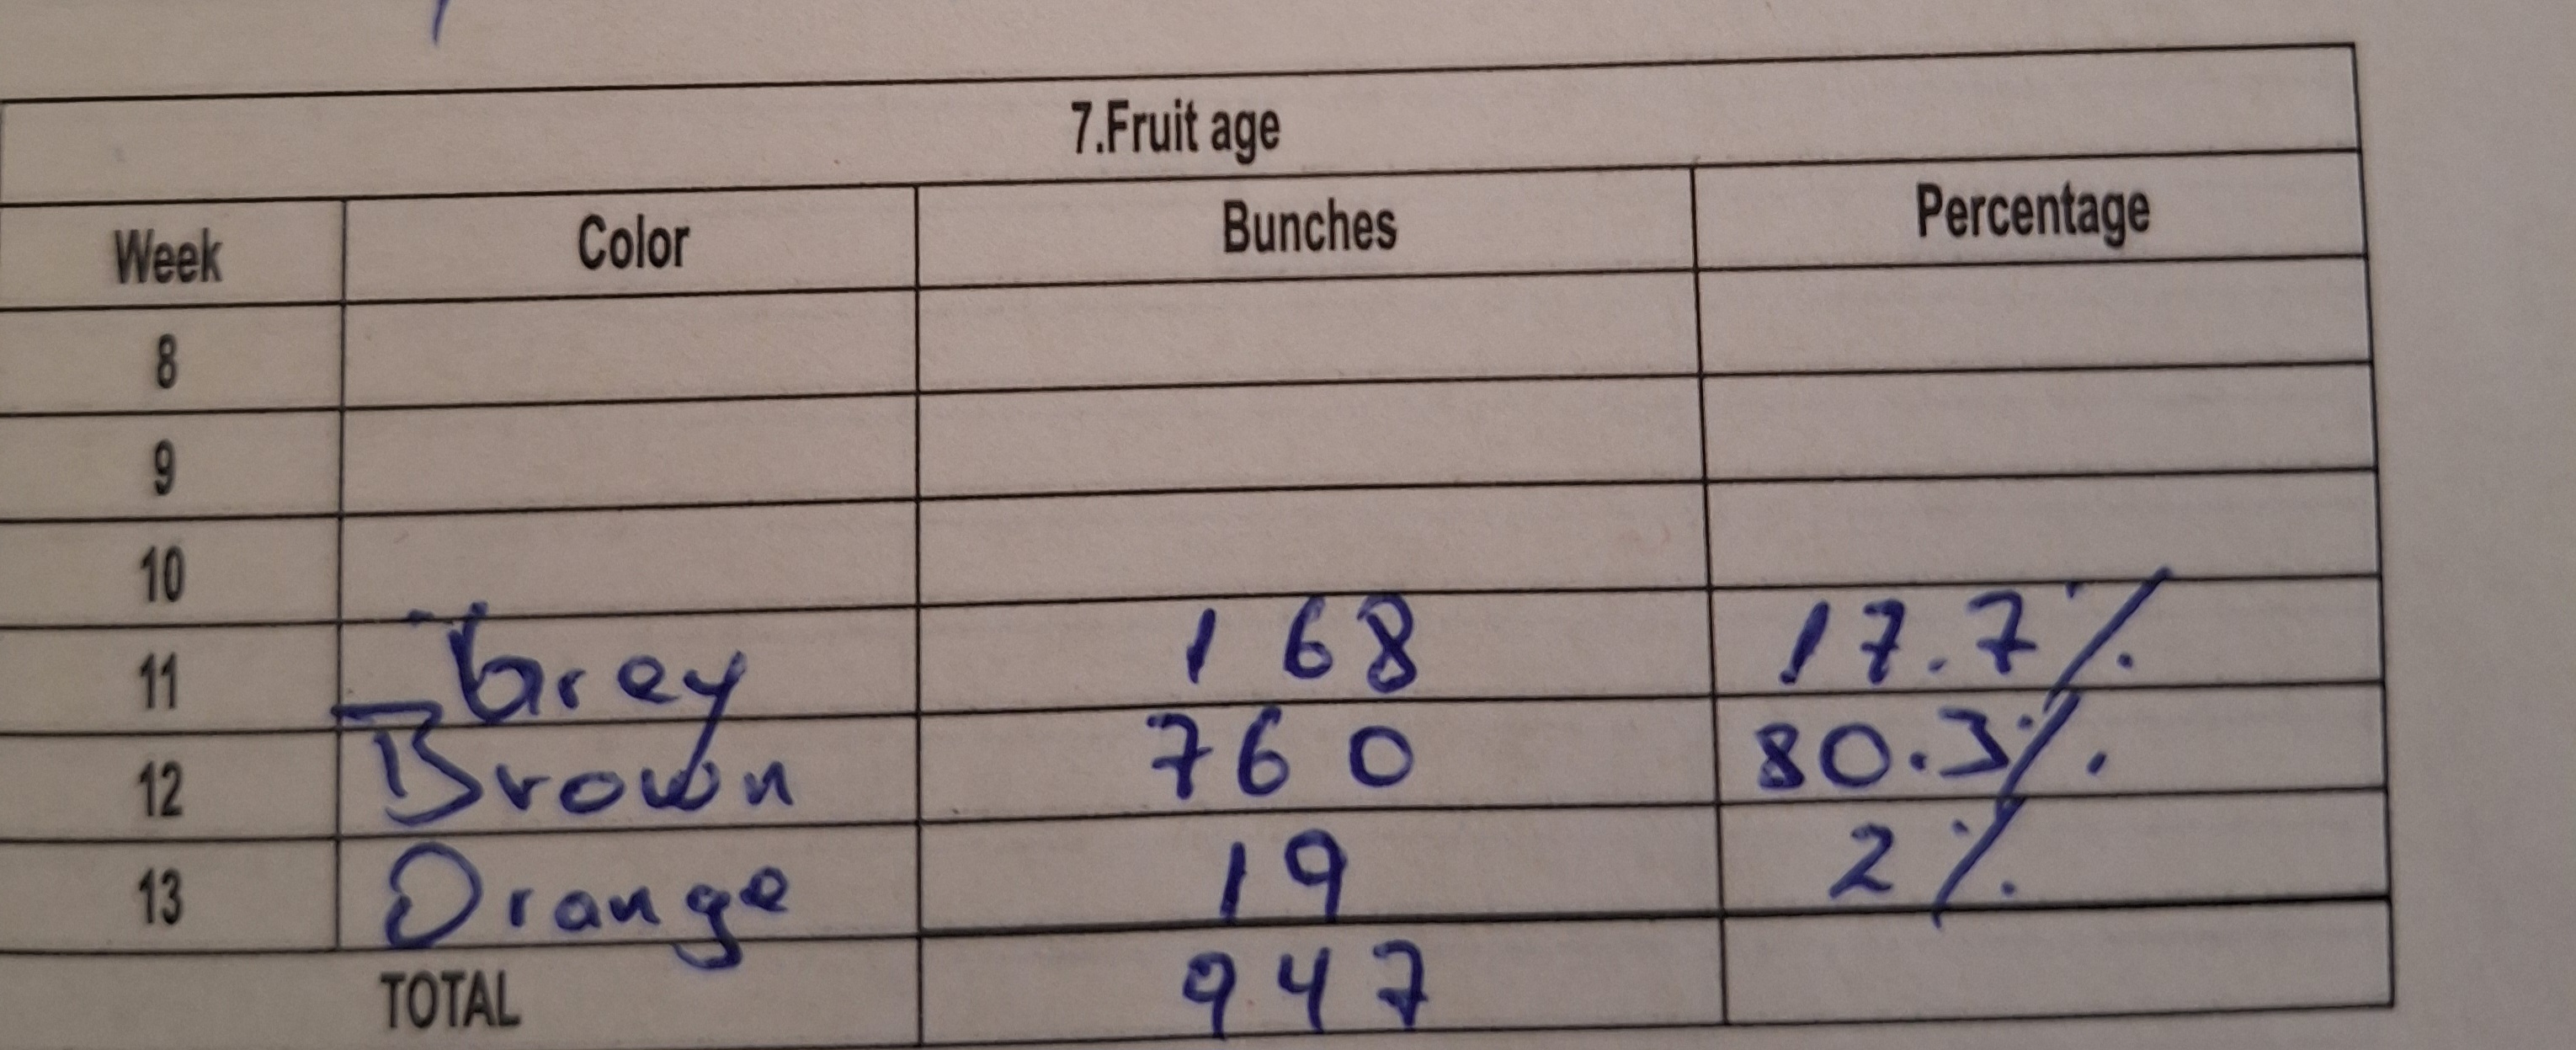 7.Fruit age
Week Color Bunches Percentage
8
9
10
11 Grey 168 17.7%
12 Brown 760 80.3%
13 Orange 19 2%
TOTAL 947